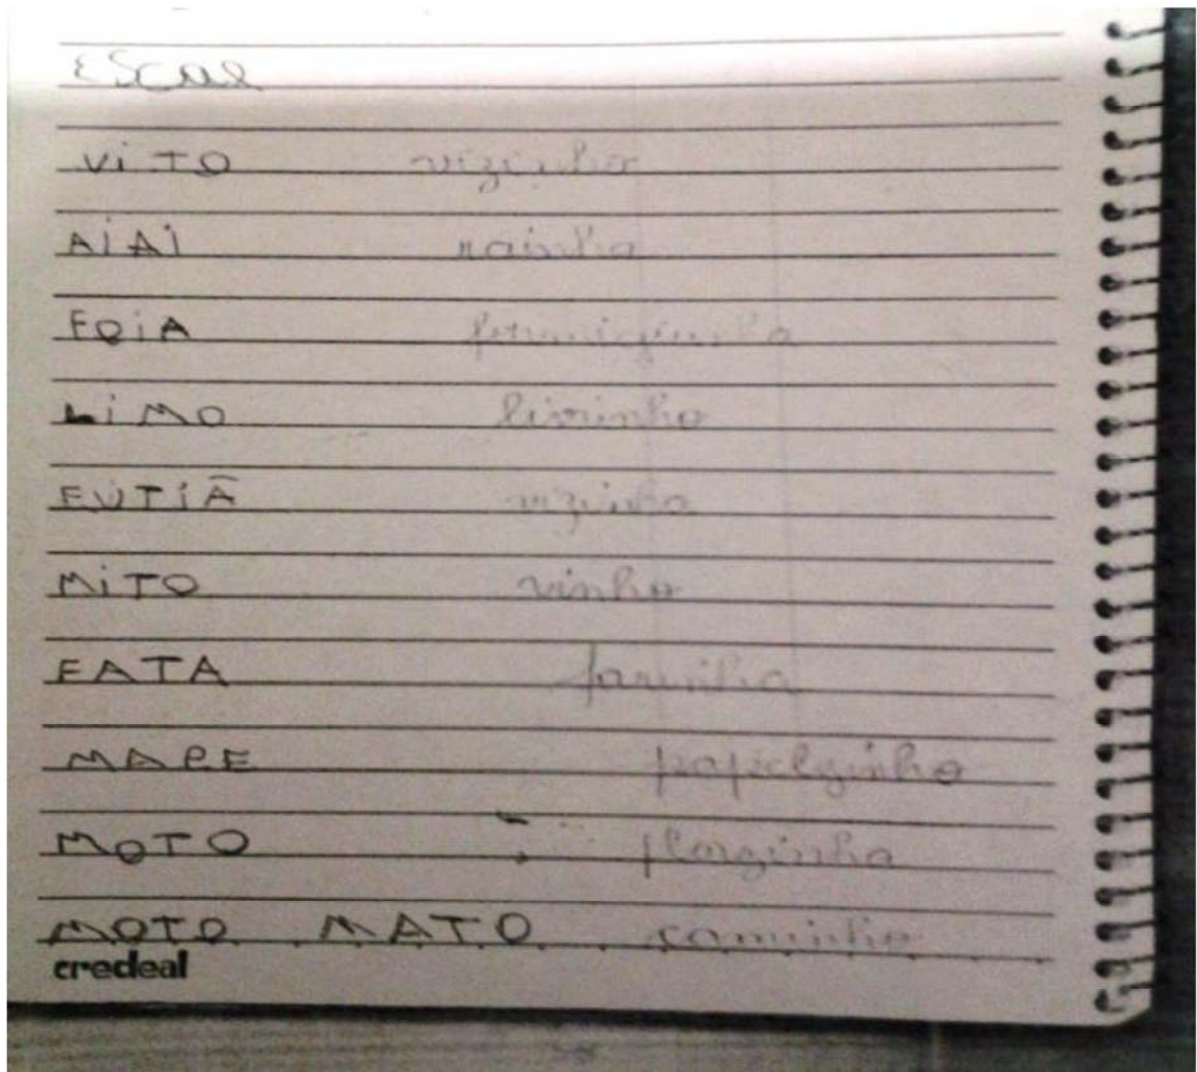 ESCOL
VITO vizinho
AIAI rainha
FOIA formiguinha
LIMO livrinho
EUTIÃ vizinha
MITO vinho
FATA farinha
MAPE papelzinho
MOTO florzinha
MOTO MATO caminho
credeal